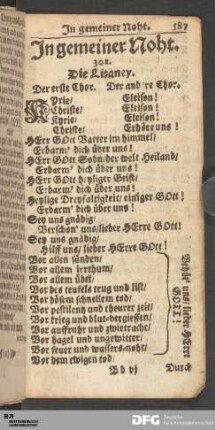 In gemeiner Noht. 587
In gemeiner Noht.
301.
Die Litaney.
Der erste Chor. Der andere Chor.
KYrie/ Eleison!
Christe/ Eleison!
Kyrie/ Eleison!
Christe/ Erhöre uns!
HErr GOtt Vatter im himmel/
Erbarm' dich über uns!
HErr GOtt Sohn/ der welt Heiland/
Erbarm' dich über uns!
HErr GOtt heyliger Geist/
Erbarm' dich über uns!
Heylige Dreyfaltigkeit/ einiger GOtt!
Erbarm' dich über uns!
Sey uns gnädig/
Verschon' uns/ lieber HErre GOtt!
Sey uns gnädig/
Hilff uns/ lieber HErre GOtt!
Vor allen sünden/
Vor allem irrthum/
Vor allem übel/
Vor des teufels trug und list/
Vor bösem schnellem tod/
Vor pestilentz und theurer zeit/
Vor krieg und blut-vergiessen/
Vor auffruhr und zwietracht/
Vor hagel und ungewitter/
Vor feuer und wassers-noht/
Vor dem ewigen tod/
Behüt' uns/ lieber HErre
GOTT!
Durch
DFG